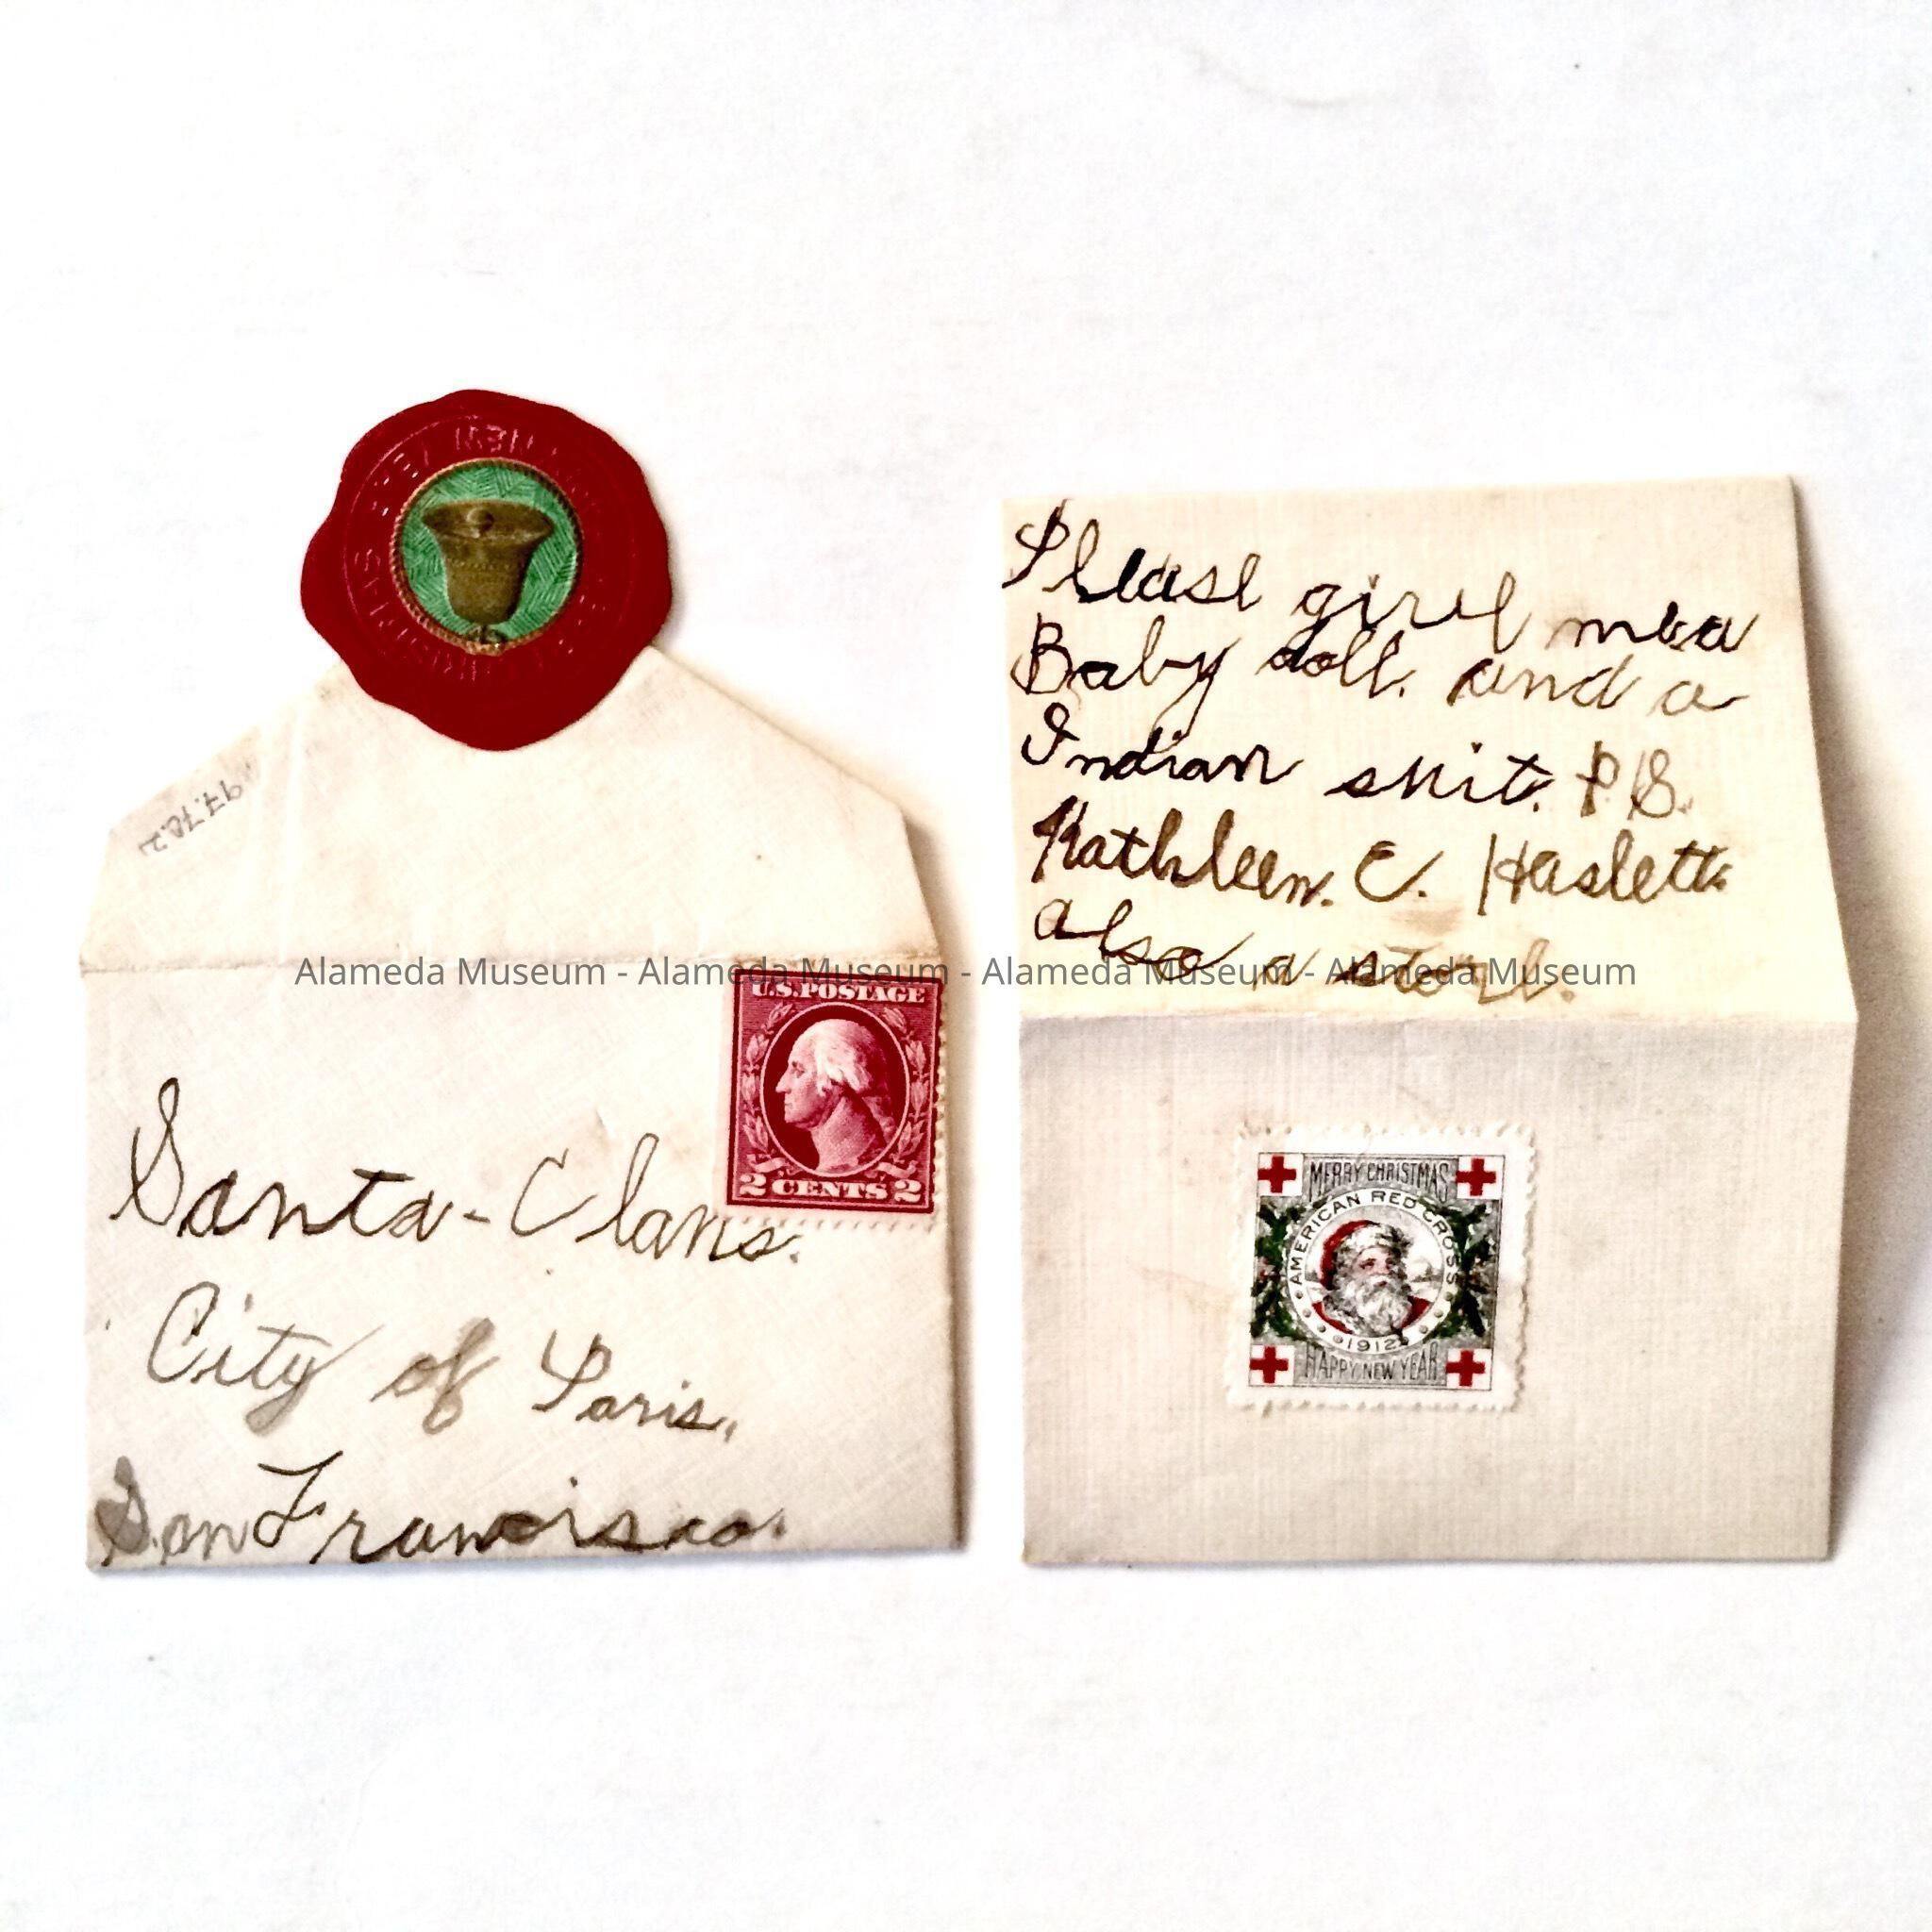 97.78.2
U.S. POSTAGE
2 CENTS 2
Santa-Claus.
City of Paris,
San Francisco.
Please give me a
Baby doll. and a
Indian suit. P.S.
Kathleen. C. Haslett.
also a
MERRY CHRISTMAS
AMERICAN RED CROSS
1912
HAPPY NEW YEAR
Alameda Museum - Alameda Museum - Alameda Museum - Alameda Museum